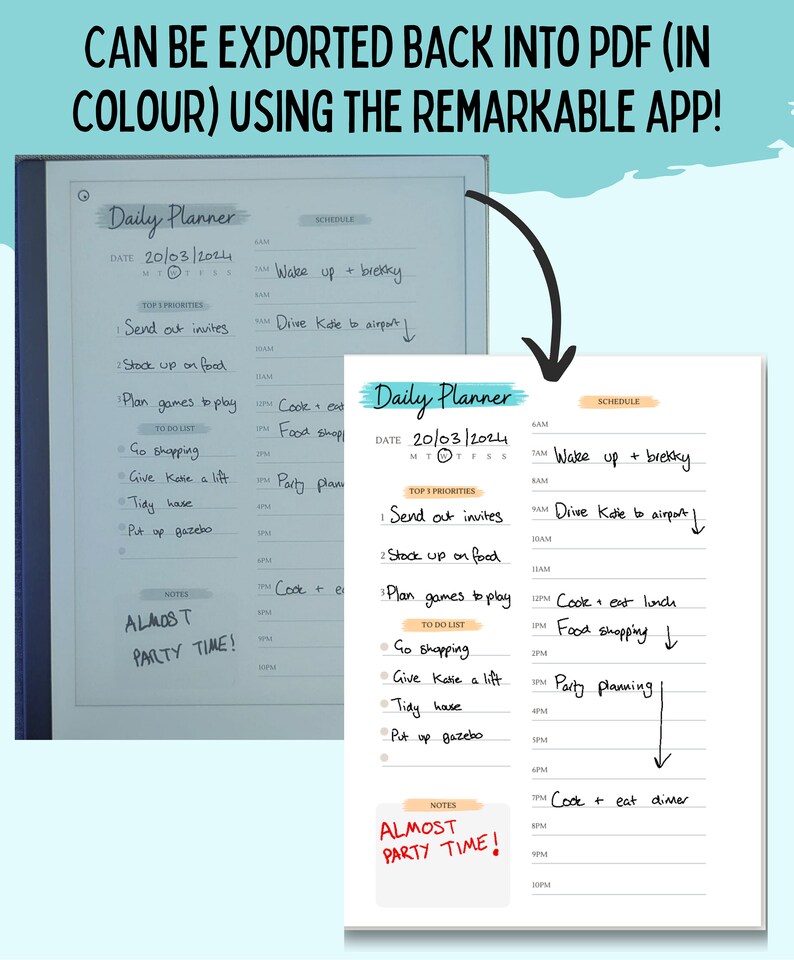 CAN BE EXPORTED BACK INTO PDF (IN
COLOUR) USING THE REMARKABLE APP!
Daily Planner
DATE 20/03/2024
M T W T F S S
TOP 3 PRIORITIES
1 Send out invites
2 Stock up on food
3 Plan games to play
TO DO LIST
Go shopping
Give Katie a lift
Tidy house
Put up gazebo
NOTES
ALMOST
PARTY TIME!
SCHEDULE
6AM
7AM Wake up + brekky
8AM
9AM Drive Katie to airport
10AM
11AM
12PM Cook + eat
1PM Food shopp
2PM
3PM Party plann
4PM
5PM
6PM
7PM Cook + e
8PM
9PM
10PM
Daily Planner
DATE 20/03/2024
M T W T F S S
TOP 3 PRIORITIES
1 Send out invites
2 Stock up on food
3 Plan games to play
TO DO LIST
Go shopping
Give Katie a lift
Tidy house
Put up gazebo
NOTES
ALMOST
PARTY TIME!
SCHEDULE
6AM
7AM Wake up + brekky
8AM
9AM Drive Katie to airport
10AM
11AM
12PM Cook + eat lunch
1PM Food shopping
2PM
3PM Party planning
4PM
5PM
6PM
7PM Cook + eat dinner
8PM
9PM
10PM